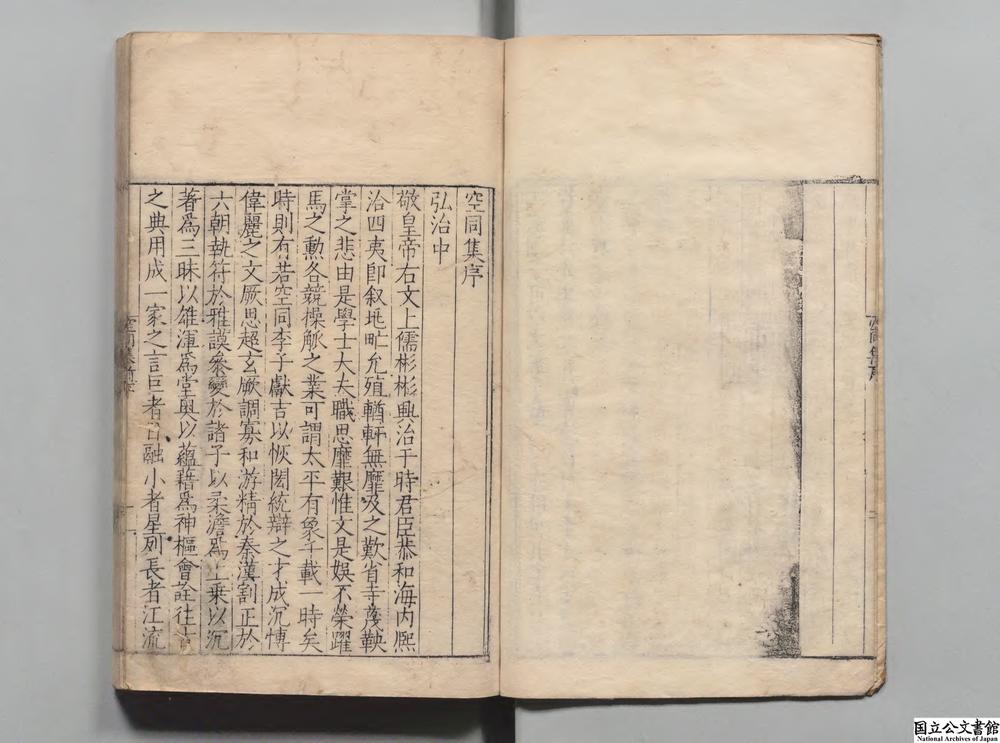 空同集序
弘治中
敬皇帝右文上儒彬彬興治于時君臣恭和海内熙
洽四夷即叙兆甿允殖輶軒無靡及之歎省寺蔑鞅
掌之悲由是學士大夫職思靡艱惟文是娛不榮躍
馬之勲各競操觚之業可謂太平有象千載一時矣
時則有若空同李子獻吉以恢閎統辯之才成沉博
偉麗之文厥思超玄厥調寡和游精於秦漢割正於
六朝執符於雅謨參變於諸子以柔澹為上乗以沉
著爲三昧以雄渾爲堂奥以藴藉爲神樞會詮往古
之典用成一家之言巨者日融小者星列長者江流
空同集序
国立公文書館
National Archives of Japan